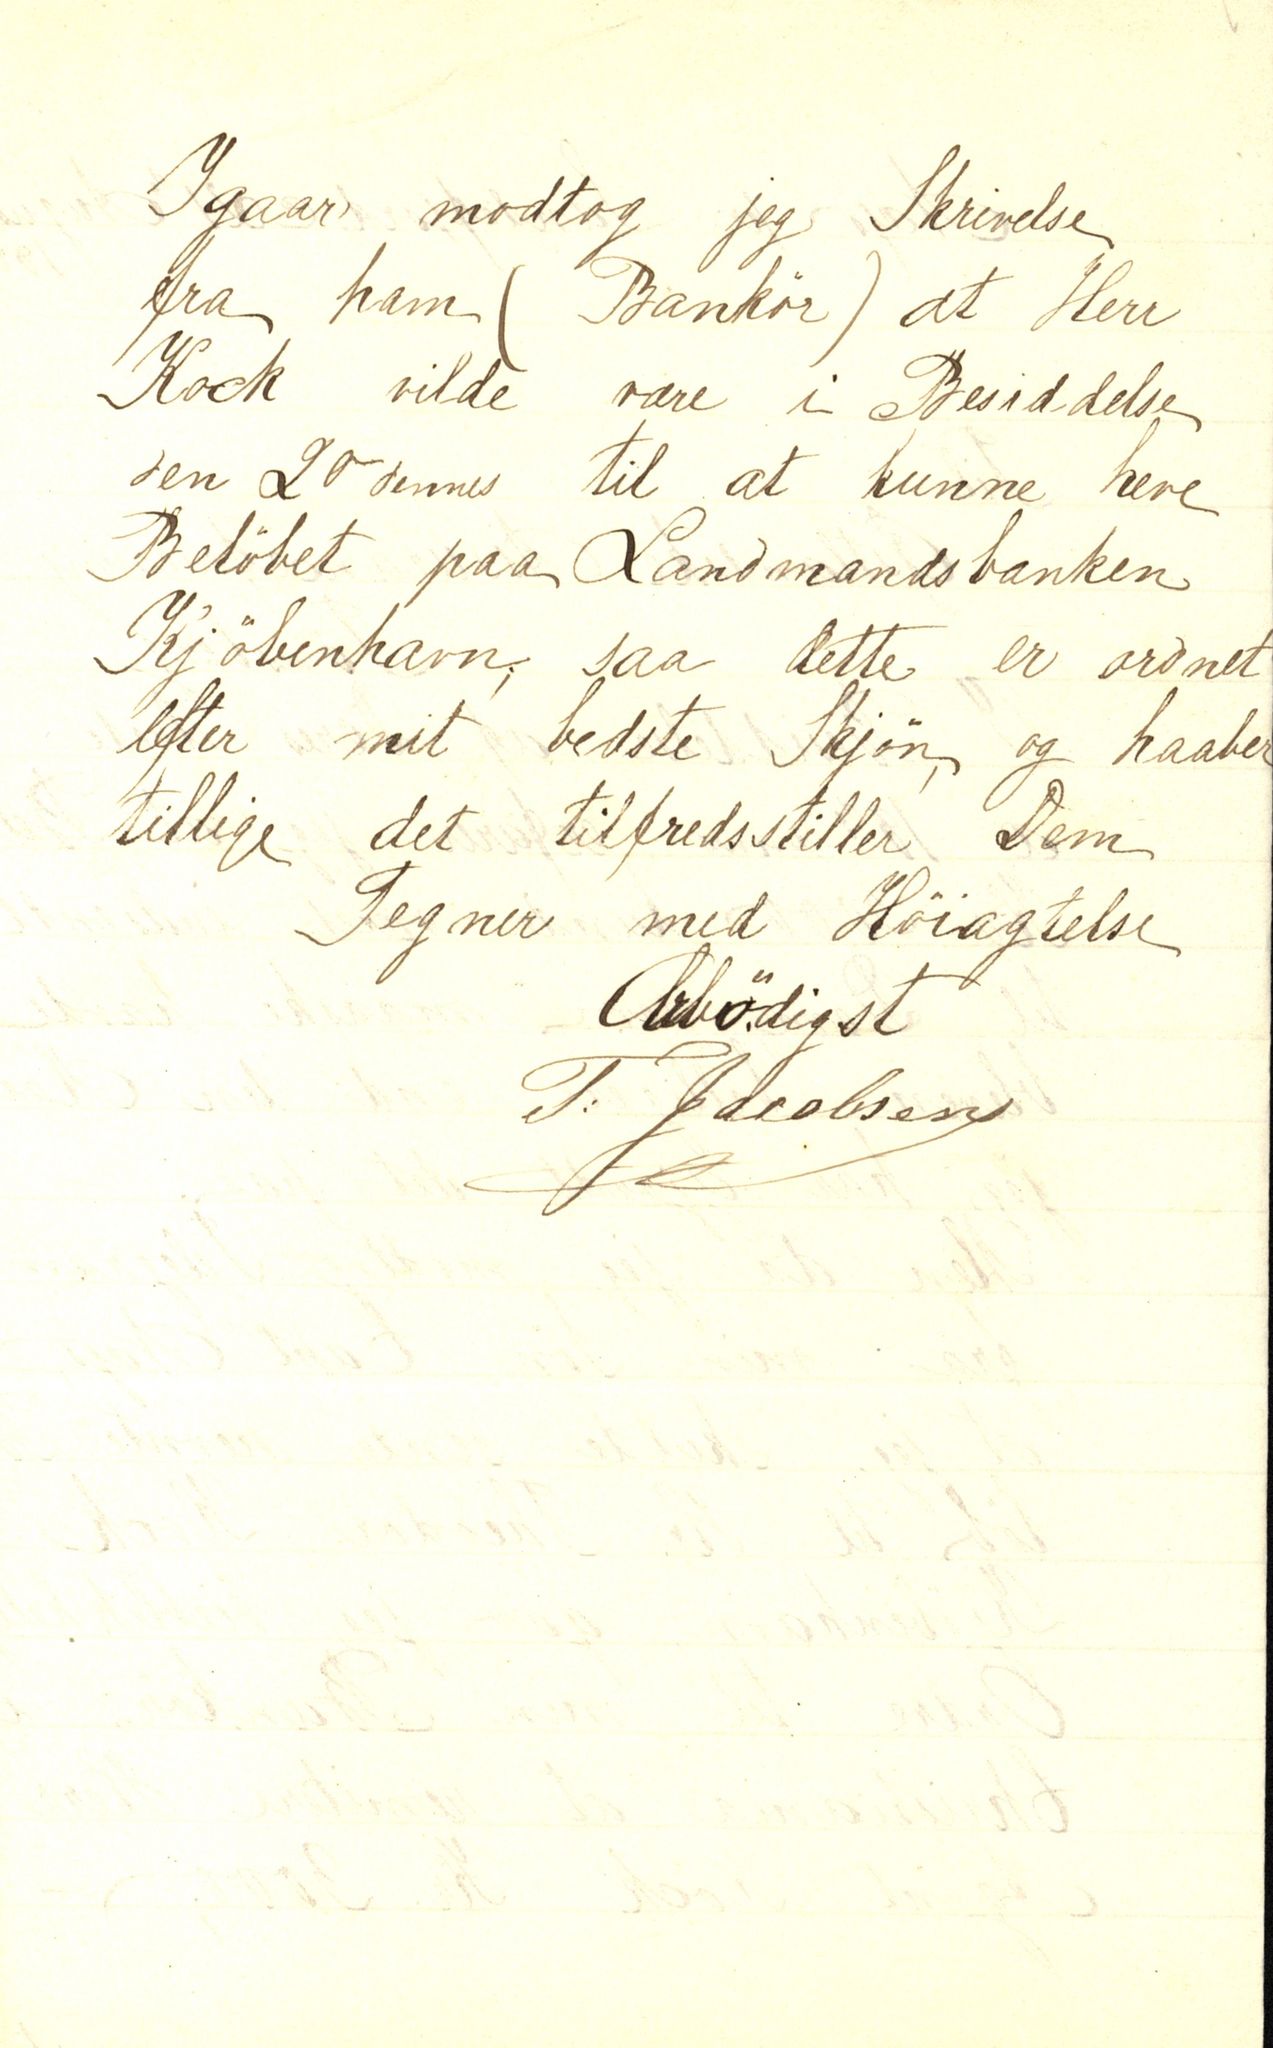 Igaar modtog jeg Skrivelse
fra ham (Bankör) at Herr
Kock vilde være i Besiddelse
den 20 dennes til at kunne heve
Belöbet paa Landmandsbanken
Kjöbenhavn, saa dette er ordnet
efter mit bedste Skjön, og haaber
tillige det tilfredsstiller Dem
Tegner med Höiagtelse
Arbödigst
T. Jacobsen